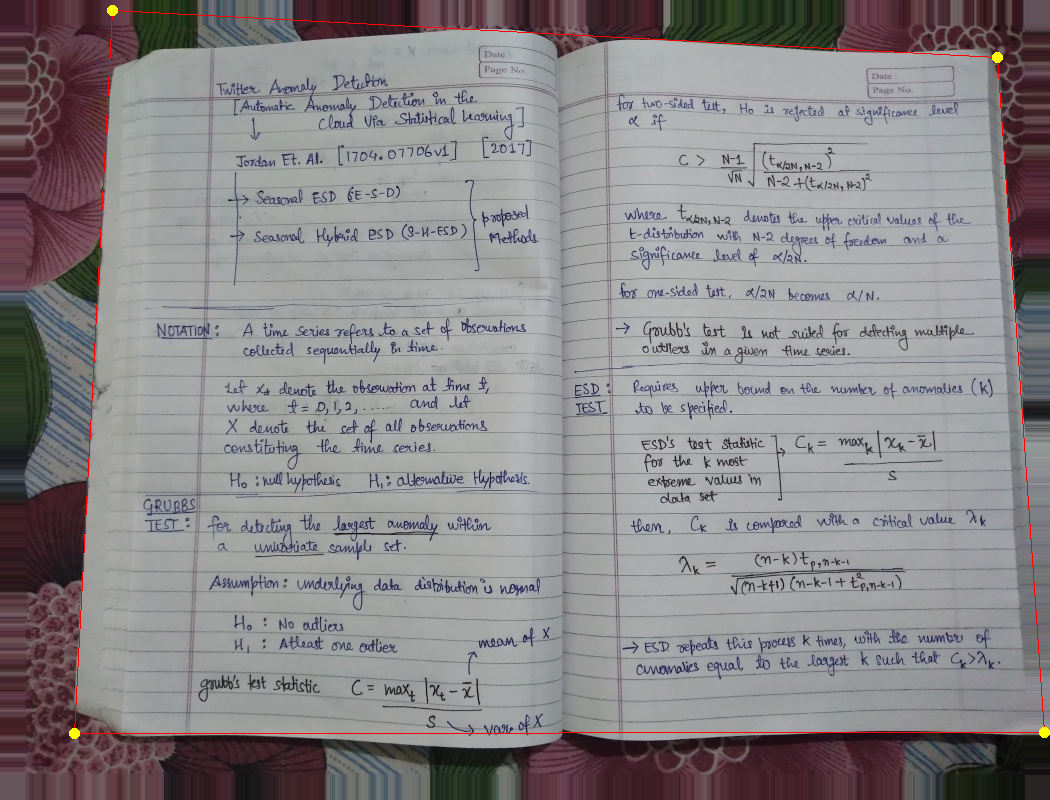 Date :
Page No.
Twitter Anomaly Detection
[Automatic Anomaly Detection in the
Cloud Via Statistical Learning]
↓
Jordan Et. Al. [1704.07706v1] [2017]
→ Seasonal ESD (E-S-D)
→ Seasonal Hybrid ESD (S-H-ESD)
proposed
Methods
NOTATION : A time series refers to a set of observations
collected sequentially in time.
Let xt denote the observation at time t,
where t = 0, 1, 2, ...... and let
X denote the set of all observations
constituting the time series.
H0 : null hypothesis H1 : alternative Hypothesis.
GRUBBS
TEST : for detecting the largest anomaly within
a univariate sample set.
Assumption : underlying data distribution is normal
H0 : No outliers
H1 : Atleast one outlier
mean of X
grubb's test statistic C = maxt |xt - x̄|
S → var of X
Date :
Page No.
for two-sided test, H0 is rejected at significance level
α if
C > N-1/√N √((tα/2N, N-2)² / N-2+(tα/2N, N-2)²)
where tα/2N, N-2 denotes the upper critical values of the
t-distribution with N-2 degrees of freedom and a
significance level of α/2N.
for one-sided test, α/2N becomes α/N.
→ Grubb's test is not suited for detecting multiple
outliers in a given time series.
ESD : Requires upper bound on the number of anomalies (k)
TEST to be specified.
ESD's test statistic
for the k most
extreme values in
data set
Ck = maxk |xk - x̄|
S
then, Ck is compared with a critical value λk
λk = (n-k) tp,n-k-1
√(n-k+1) (n-k-1 + t²p,n-k-1)
→ ESD repeats this process k times, with the number of
anomalies equal to the largest k such that Ck > λk.